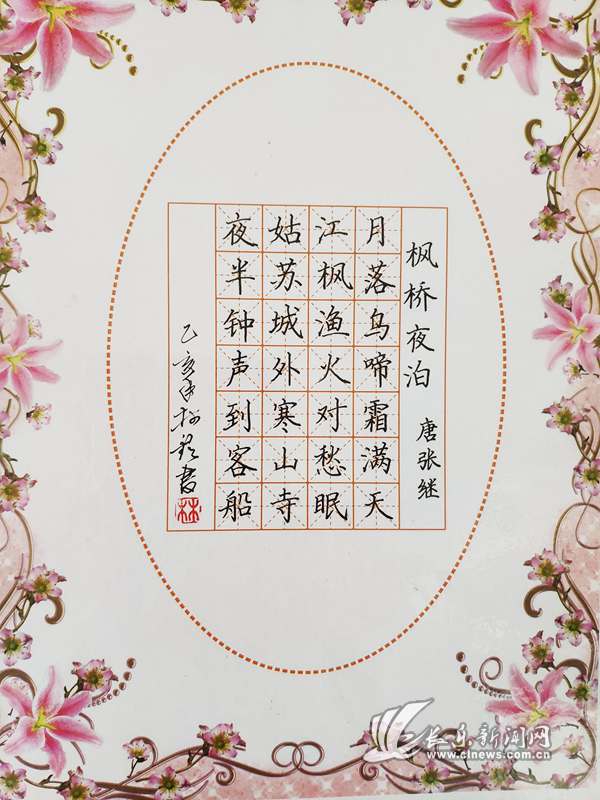 枫桥夜泊 唐张继
月落鸟啼霜满天
江枫渔火对愁眠
姑苏城外寒山寺
夜半钟声到客船
乙亥年书
林
长乐新闻网
www.clnews.com.cn